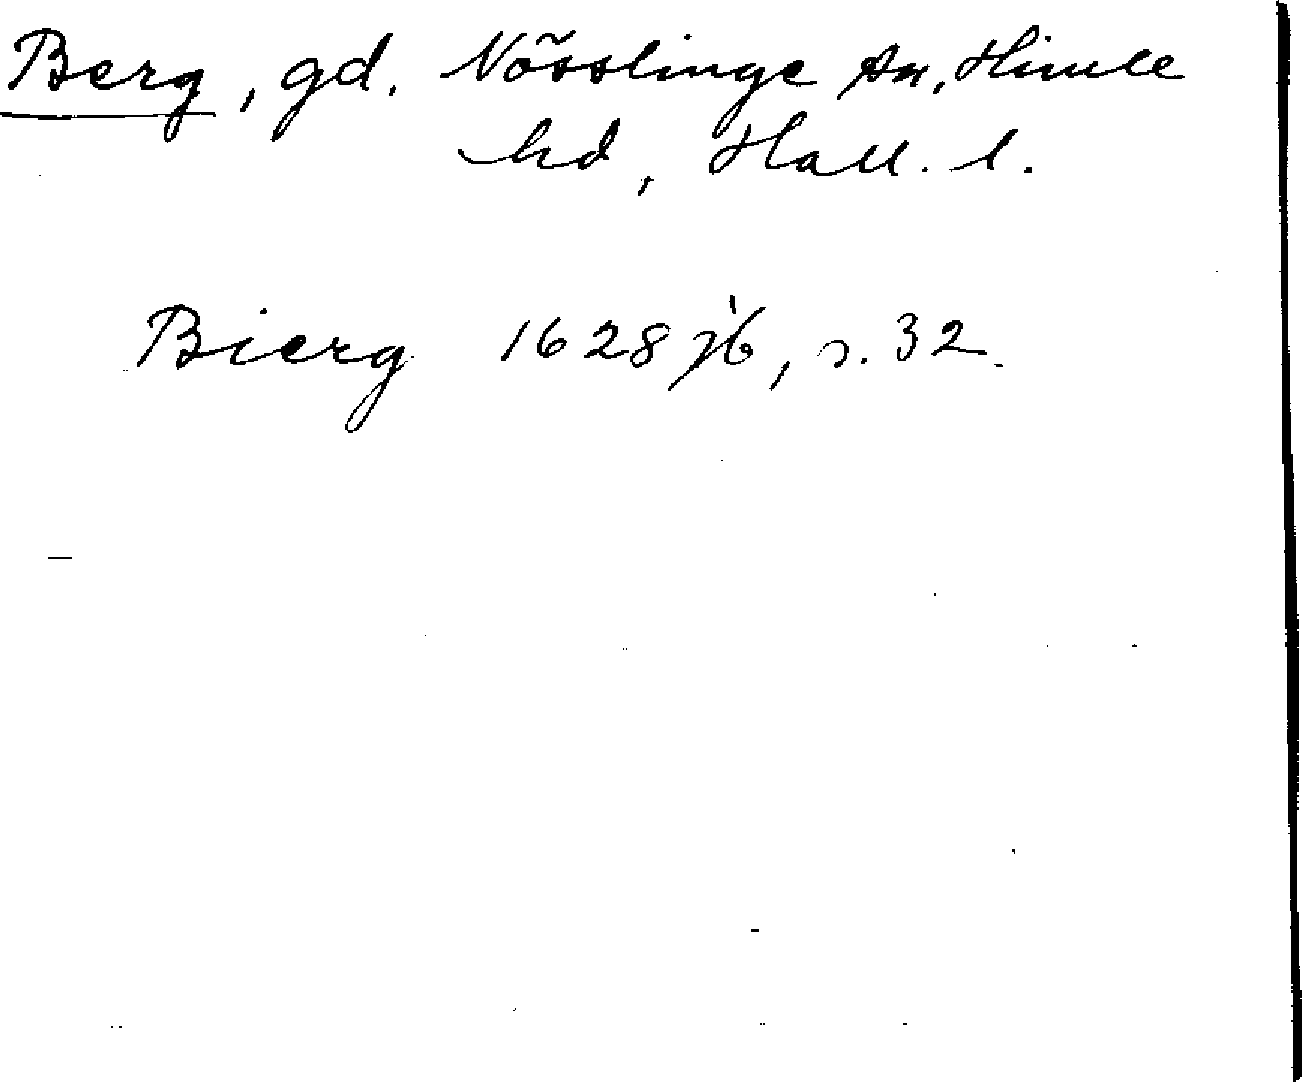 Berg, gd. Nösslinge sn, Himle
hd, Hall. l.
Bierg 1628 jb, s. 32